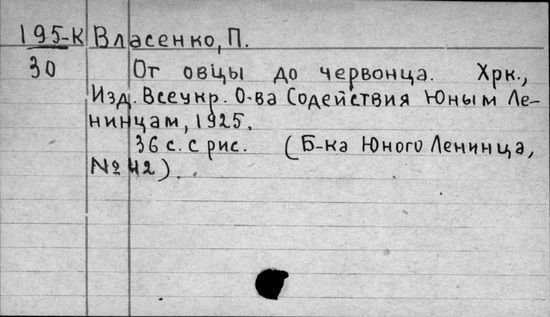 195-К Власенко, П.
30 От овцы до червонца. Хрк.,
Изд. Всеукр. О-ва Содействия Юным Ле-
нинцам, 1925.
36 с. с рис. (Б-ка Юного Ленинца,
№ 42).